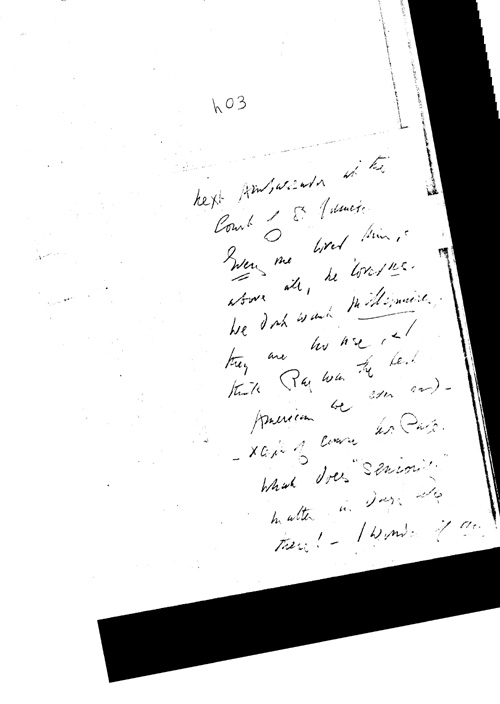 h03
next Ambassador at the
Court of St James.
Every one loved him, &
above all, he loved us.
We don't want Millionaires,
they are no use, and
think Ray was the best
American we ever
of course
what does "seniority"
matter in days
these! – I wonder if